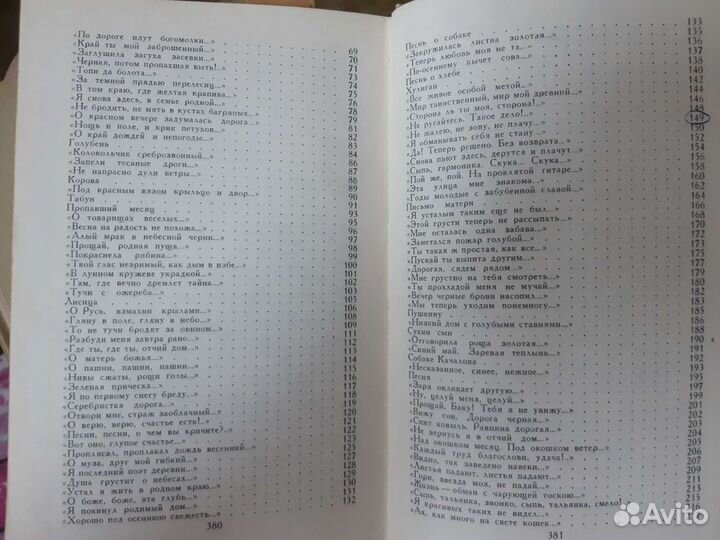 «По дороге идут богомолки...»
«Край ты мой заброшенный...» 69
«Заглушила засуха засевки...» 70
«Черная, потом пропахшая выть!..» 71
«Топи да болота...» 72
«За темной прядью перелесиц...» 74
«В том краю, где желтая крапива...» 75
«Я снова здесь, в семье родной...» 76
«Не бродить, не мять в кустах багряных...» 78
«О красном вечере задумалась дорога...» 79
«Нощь и поле, и крик петухов...» 81
«О край дождей и непогоды...» 82
Голубень 83
«Колокольчик среброзвонный...» 84
«Запели тесаные дроги...» 85
«Не напрасно дули ветры...» 87
Корова 88
«Под красным вязом крыльцо и двор...» 89
Табун 90
Пропавший месяц 91
«О товарищах веселых...» 93
«Весна на радость не похожа...» 95
«Алый мрак в небесной черни...» 96
«Прощай, родная пуща...» 97
«Покраснела рябина...» 98
«Твой глас незримый, как дым в избе... 99
«В лунном кружеве украдкой...» 100
«Там, где вечно дремлет тайна...» 101
«Тучи с ожереба...» 102
Лисица 103
«О Русь, взмахни крыльами...» 105
«Гляну в поле, гляну в небо...» 106
«То не тучи бродят за овином...» 108
«Разбуди меня завтра рано...» 110
«Где ты, где ты, отчий дом...» 111
«О матерь божья...» 112
«О пашни, пашни, пашни...» 113
«Нивы сжаты, рощи голы...» 115
«Зеленая прическа...» 116
«Я по первому снегу бреду...» 117
«Серебристая дорога...» 119
«Отвори мне, страж заоблачный...» 120
«О верю, верю, счастье есть!..» 121
«Песни, песни, о чем вы кричите?..» 122
«Вот оно, глупое счастье...» 123
«Проплясал, проплакал дождь весенний...» 124
«О муза, друг мой гибкий...» 125
«Я последний поэт деревни...» 127
«Душа грустит о небесах...» 128
«Устал я жить в родном краю...» 129
«О боже, боже, эта глубь...» 130
«Я покинул родимый дом... 131
«Хорошо под осеннюю свежесть...» 132
380
133
Песнь о собаке 135
«Закружилась листва золотая...» 136
«Теперь любовь моя не та...» 137
«По-осеннему кычет сова...» 138
Песнь о хлебе 140
Хулиган 142
«Все живое особой метой...» 144
«Мир таинственный, мир мой древний...» 146
«Сторона ль ты моя, сторона!..» 148
«Не ругайтесь. Такое дело!..» 149
«Не жалею, не зову, не плачу...» 150
«Я обманывать себя не стану...» 152
«Да! Теперь решено. Без возврата...» 154
«Снова пьют здесь, дерутся и плачут...» 156
«Сыпь, гармоника. Скука... Скука...» 158
«Пой же, пой. На проклятой гитаре...» 160
«Эта улица мне знакома...» 162
«Годы молодые с забубенной славой...» 164
Письмо матери 166
«Я усталым таким еще не был...» 168
«Этой грусти теперь не рассыпать...» 170
«Мне осталась одна забава...» 172
«Заметался пожар голубой...» 173
«Ты такая ж простая, как все... 175
«Пускай ты выпита другим...» 177
«Дорогая, сядем рядом...» 179
«Мне грустно на тебя смотреть...» 180
«Ты прохладой меня не мучай...» 182
«Вечер черные брови насопил...» 183
«Мы теперь уходим понемногу...» 185
Пушкину 186
«Низкий дом с голубыми ставнями...» 187
Сукин сын 188
«Отговорила роща золотая...» 190
«Синий май. Заревая теплынь...» 191
Собаке Качалова 192
«Несказанное, синее, нежное...» 194
Песня 196
«Заря окликает другую...» 197
«Ну, целуй меня, целуй...» 199
«Прощай, Баку! Тебя я не увижу...» 201
«Вижу сон. Дорога черная...» 202
«Спит ковыль. Равнина дорогая...» 203
«Не вернусь я в отчий дом...» 205
«Над окошком месяц. Под окошком ветер... 206
«Каждый труд благослови, удача!..» 207
«Видно, так заведено навеки...» 208
«Листья падают, листья падают...» 209
«Гори, звезда моя, не падай...» 211
«Жизнь — обман с чарующей тоскою...» 213
«Сыпь, тальянка, звонко, сыпь, тальянка, смело! 215
«Я красивых таких не видел...» 216
«Ах, как много на свете кошек...»
381
Avito